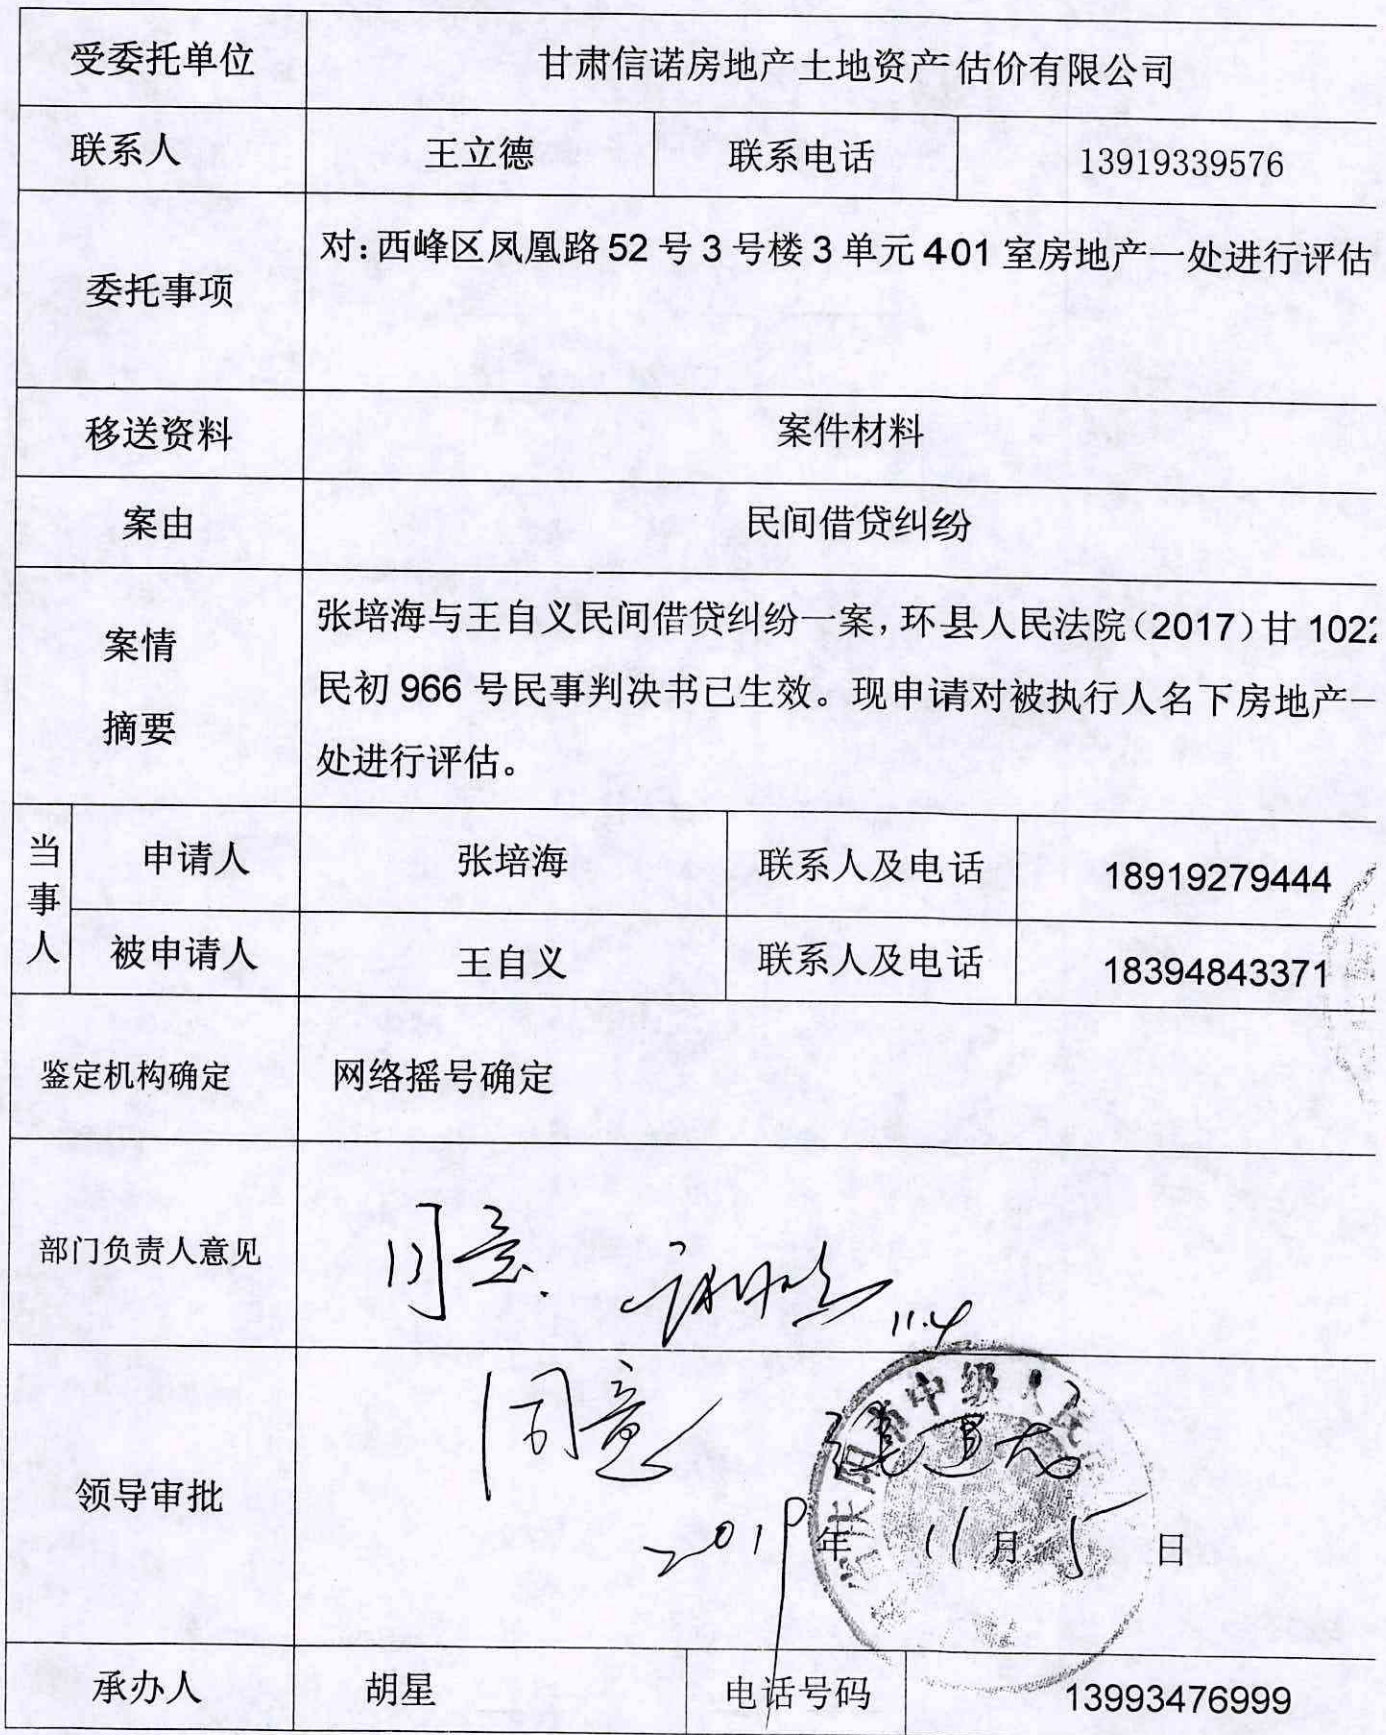 受委托单位 甘肃信诺房地产土地资产估价有限公司
联系人 王立德 联系电话 13919339576
委托事项 对：西峰区凤凰路52号3号楼3单元401室房地产一处进行评估
移送资料 案件材料
案由 民间借贷纠纷
案情
摘要
张培海与王自义民间借贷纠纷一案，环县人民法院（2017）甘1022
民初966号民事判决书已生效。现申请对被执行人名下房地产一
处进行评估。
当事人
申请人 张培海 联系人及电话 18919279444
被申请人 王自义 联系人及电话 18394843371
鉴定机构确定 网络摇号确定
部门负责人意见 同意. 11.4
领导审批 同意
中级人民
2019年11月5日
承办人 胡星 电话号码 13993476999